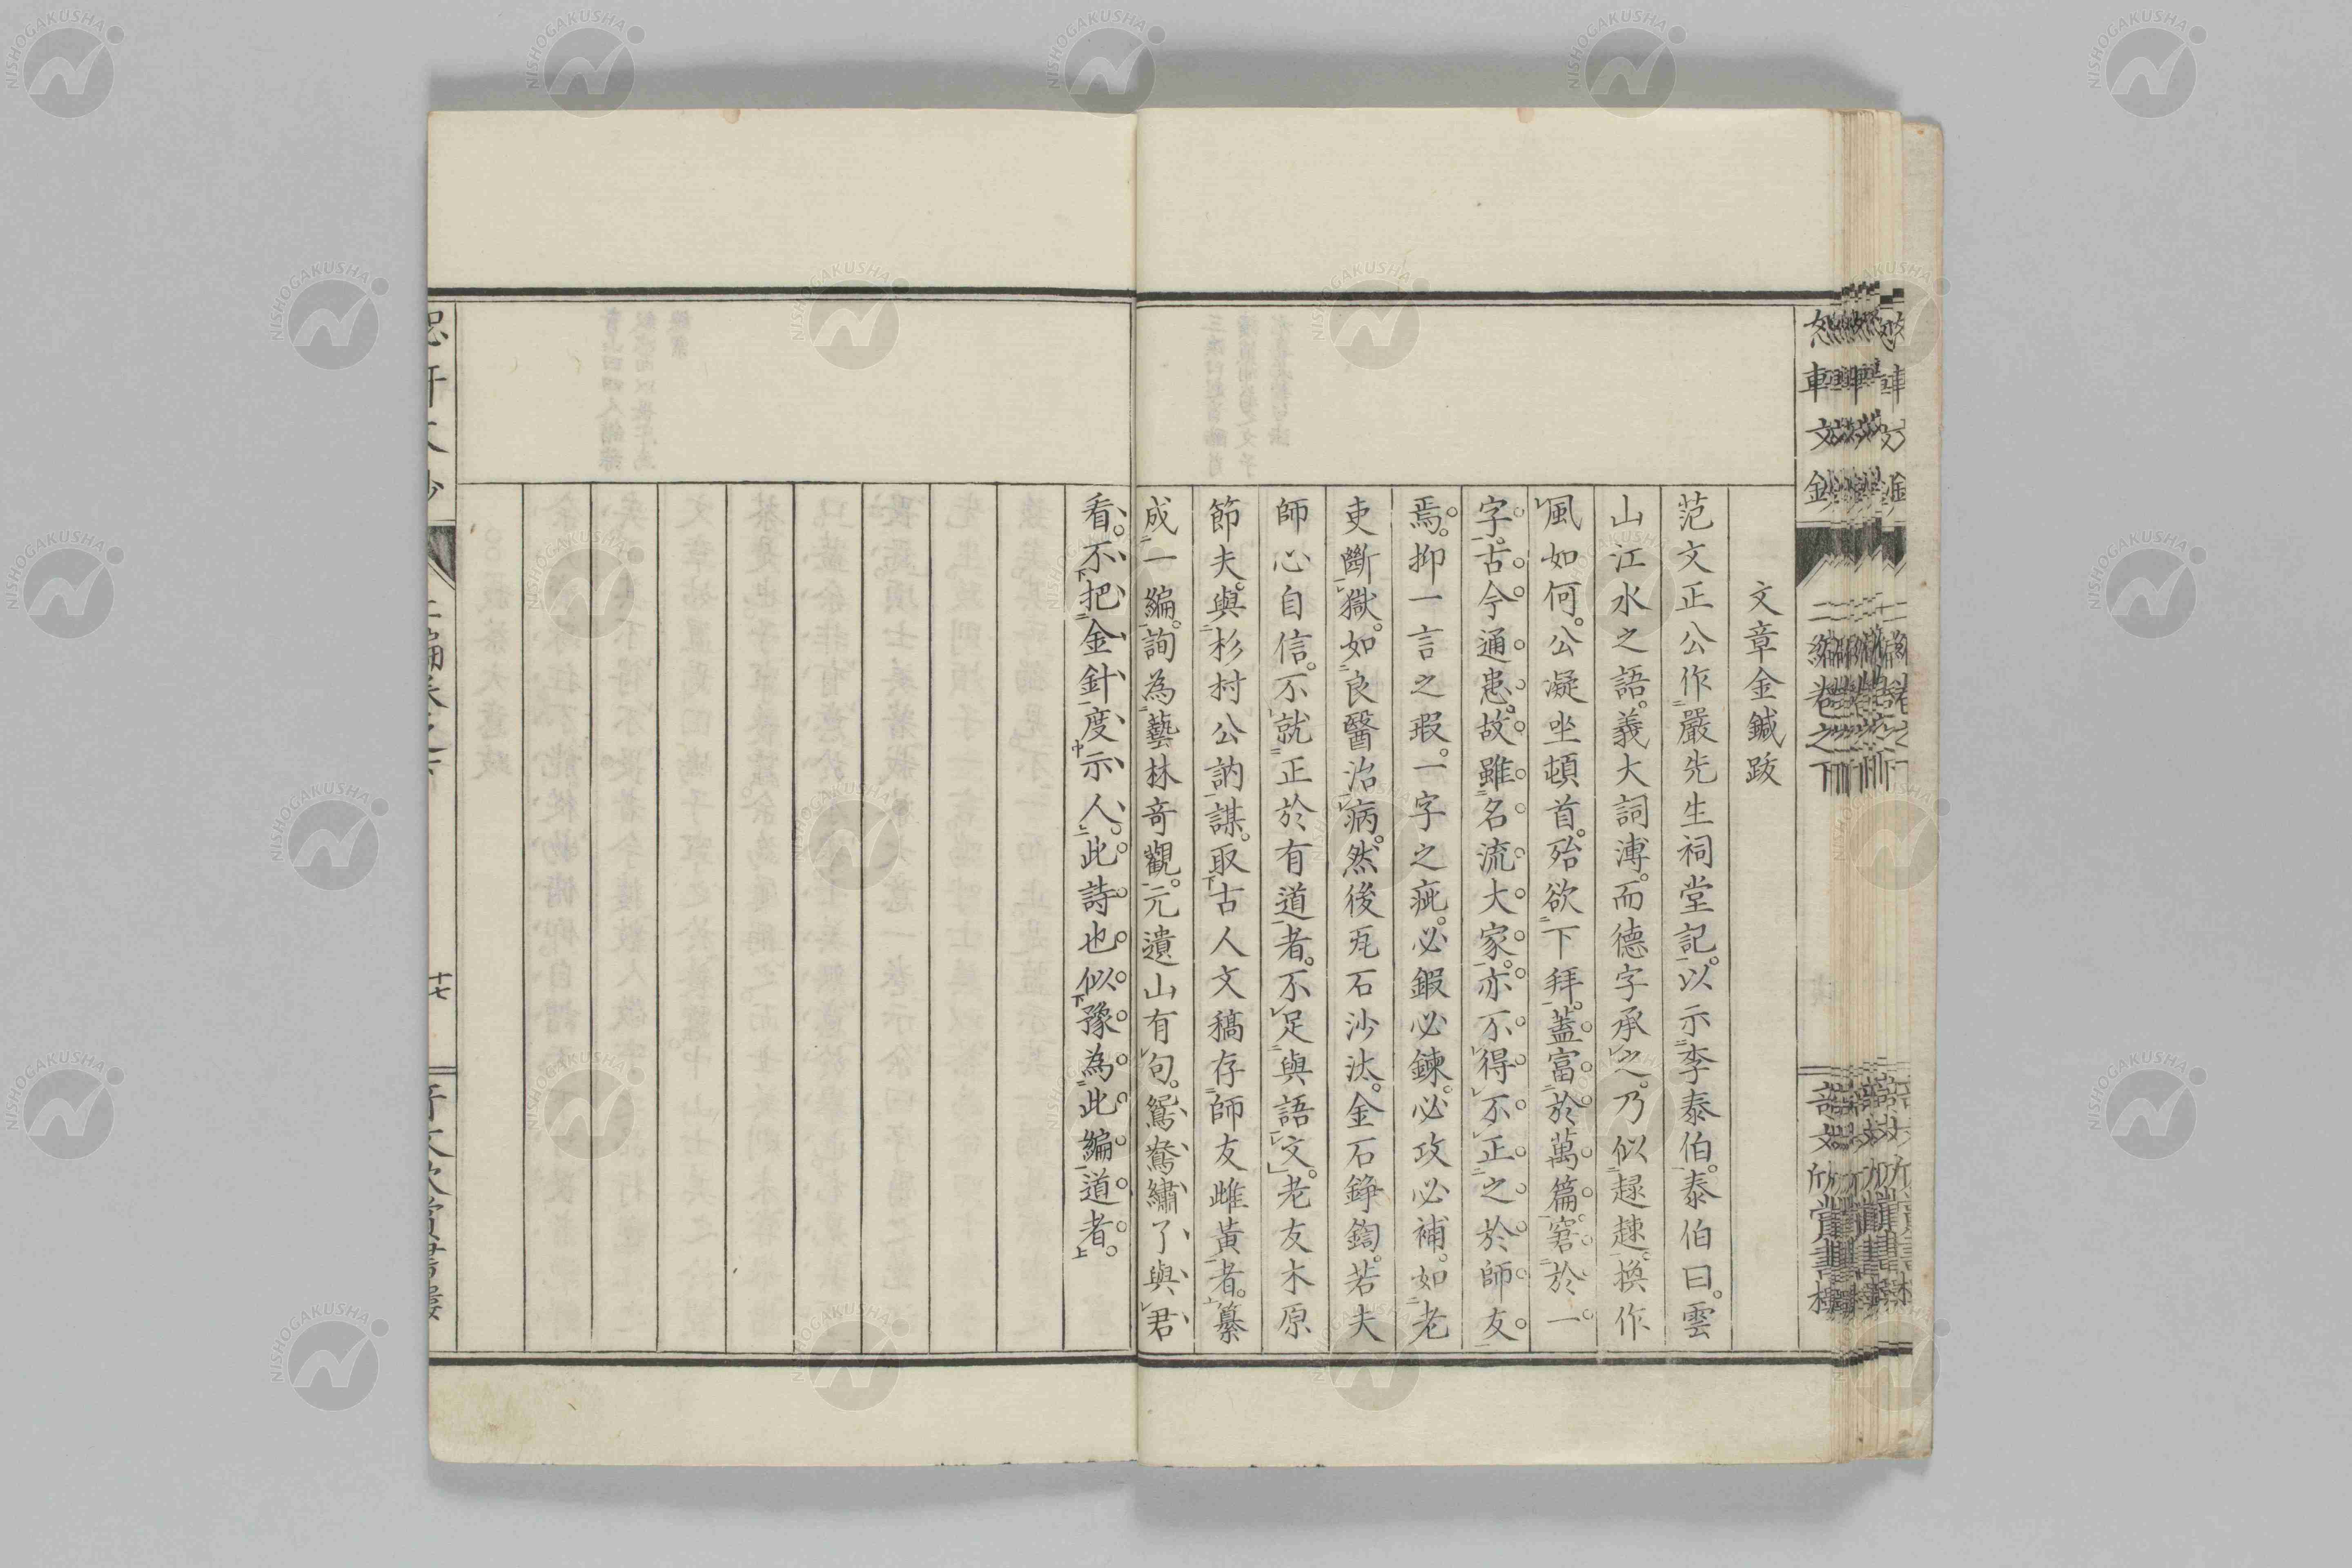 文章金鍼跋
范文正公作嚴先生祠堂記。以示李泰伯。泰伯曰。雲
山江水之語。義大詞溥。而德字承之。乃似趢趚。換作
風如何。公凝坐頓首。殆欲下拜。蓋富於萬篇。窘於一
字。古今通患。故雖名流大家。亦不得不正之於師友
焉。抑一言之瑕。一字之疵。必鍜必鍊。必攻必補。如老
吏斷獄。如良醫治病。然後瓦石沙汰。金石錚鍧。若夫
師心自信。不就正於有道者。不足與語文。老友木原
節夫。與杉村公訥謀。取古人文稿存師友雌黃者。纂
成一編。詢為藝林奇觀。元遺山有句。鴛鴦繡了與君
看。不把金針度示人。此詩也似豫為此編道者。
十七
NISHOGAKUSHA